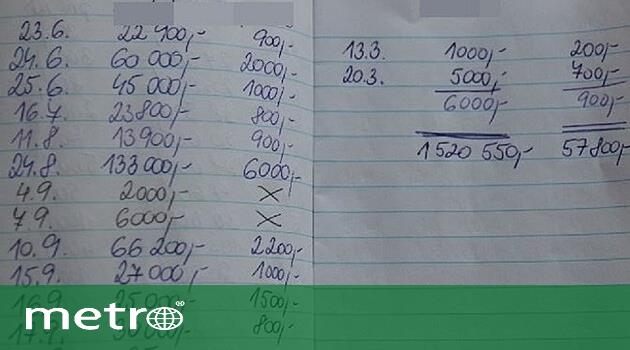 23.6. 22 400,- 900,-
24.6. 60 000,- 2000,-
25.6. 45 000,- 1000,-
16.7. 23 800,- 800,-
11.8. 13 900,- 900,-
24.8. 133 000,- 6000,-
4.9. 2000,- X
7.9. 6000,- X
10.9. 66 200,- 2200,-
15.9. 27 000,- 1000,-
16.9. 25 000,- 1500,-
17.9. 800,-
13.3. 1000,- 200,-
20.3. 5000,- 700,-
6000,- 900,-
1 520 550,- 57 800,-
metro